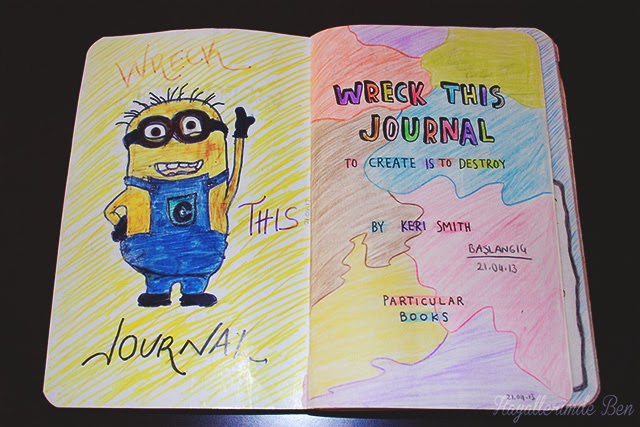 WRECK
THIS
JOURNAL
WRECK THIS
JOURNAL
TO CREATE IS TO DESTROY
BY KERI SMITH
BAŞLANGIÇ
21.04.13
PARTICULAR
BOOKS
21.04.13
Hayallerimle Ben